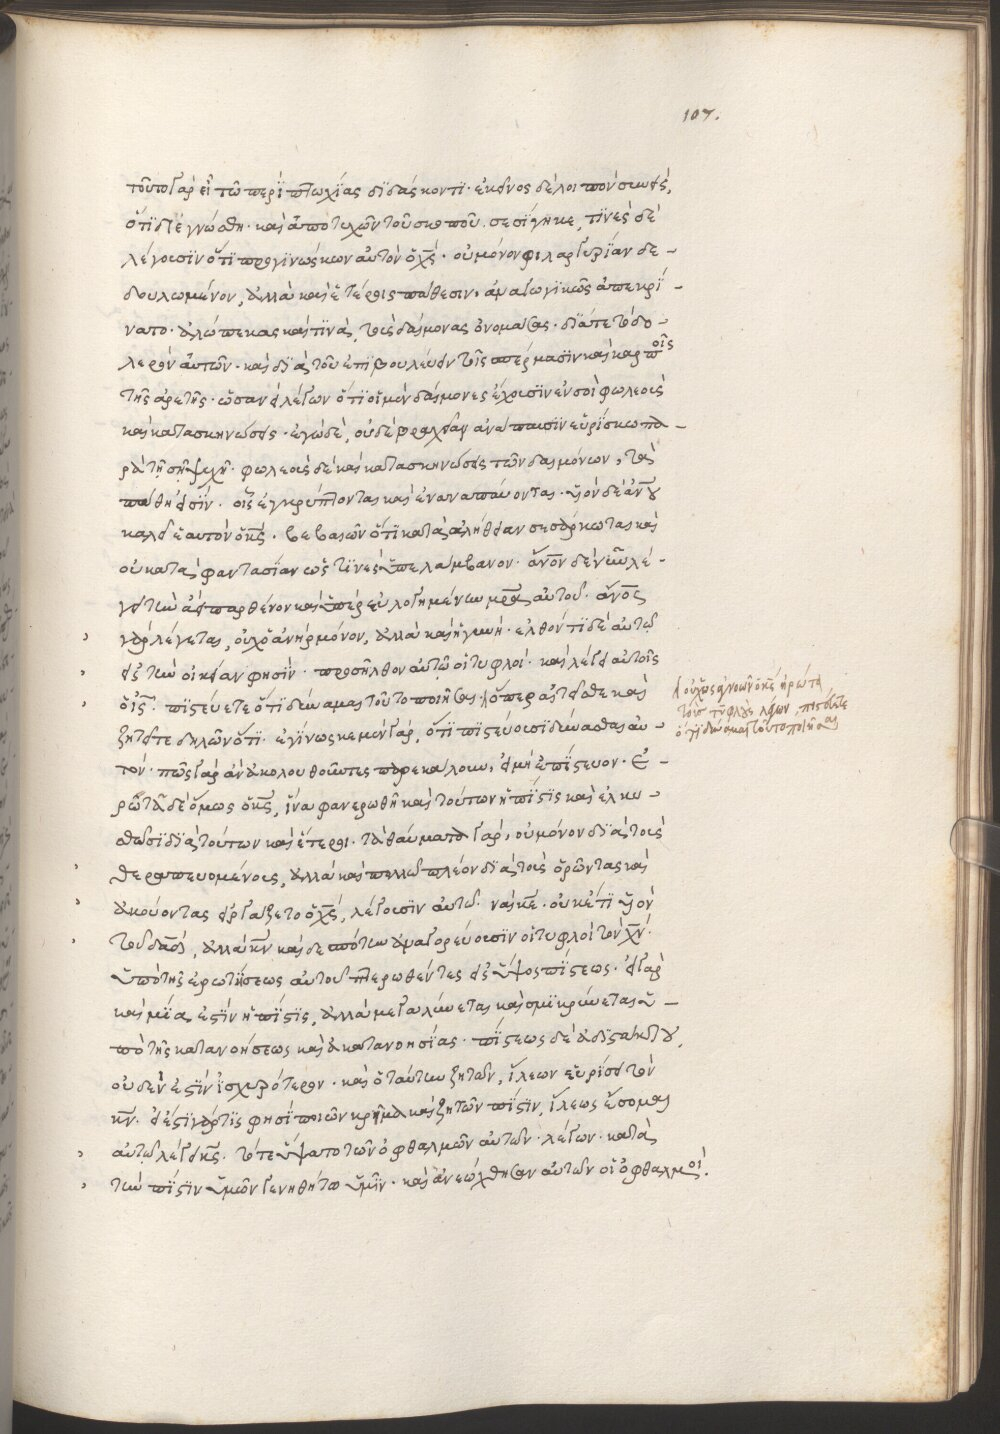 107.
τοῦτο γὰρ εἶ τῶ περὶ πτωχίας διδάσκοντι· ἐκεῖνος δὲ λοιπὸν σιωπᾷ,
ὅτι διεγνώσθη· καὶ ἀποτυχῶν τοῦ σκοποῦ. σεσίγηκε, τινὲς δὲ
λέγουσιν ὅτι προγινώσκων αὐτὸν ὁ χς· οὐ μόνον φιλαργυρίαν δε-
δουλωμένον, ἀλλὰ καὶ ἑτέροις πάθεσιν, ἀναγωγικῶς ἀπεκρί-
νατο· ἀλώπεκας καὶ πτινὰ, τοὺς δαίμονας ὀνομάσας· διά τε τὸ δο-
λερὸν αὐτῶν· καὶ διὰ τοῦ ἐπιβουλεύειν τοῖς σπέρμασιν καὶ καρποῖς
τῆς ἀρετῆς· ὡσανεὶ λέγων ὅτι οἱ μὲν δαίμονες ἔχουσιν ἐν σοὶ φωλεοὺς
καὶ κατασκηνώσεις· ἐγὼ δὲ, οὐδὲ βραχεῖαν ἀνάπαυσιν εὑρίσκω πα-
ρὰ τῆ σῆ ψυχῆ· φωλεοὺς δὲ καὶ κατασκηνώσεις τῶν δαιμόνων, τὰ
πάθη εἰσίν· οἷς ἐγκρύπτονται καὶ ἐναναπαύονται· υἱὸν δὲ ἀνου
καλεῖ ἑαυτὸν ὁ κς· βεβαιῶν ὅτι κατὰ ἀλήθειαν σεσάρκωται καὶ
οὐ κατὰ φαντασίαν ὥς τινες ὑπελάμβανον· ἄνον δὲ νῦν λέ-
γει τὴν ἀειπαρθένον καὶ ὑπερευλογημένην μρα αὐτοῦ· ἄνος
γὰρ λέγεται, οὐχ ὁ ἀνὴρ μόνον, ἀλλὰ καὶ ἡ γυνή· ἐλθόντι δὲ αὐτῶ
εἰς τὴν οἰκίαν φησὶν· προσῆλθον αὐτῶ οἱ τυφλοὶ· καὶ λέγει αὐτοῖς
ὁ ις· πιστεύετε ὅτι δύναμαι τοῦτο ποιῆσαι· ὅπερ αἰτεῖσθε καὶ
ζητεῖτε δηλῶν ὅτι· ἐγίνωσκε μὲν γὰρ, ὅτι πιστεύουσι δύνασθαι αὐ-
τόν· πῶς γὰρ ἂν ἀκολουθοῦντες παρεκάλουν, εἰ μὴ ἐπίστευον· Ἐ-
ρωτᾶ δὲ ὅμως ὁ κς, ἵνα φανερωθῆ καὶ τούτων ἡ πίστις καὶ ἑλκυ-
σθῶσι διὰ τούτων καὶ ἕτεροι· τὰ θαύματα γὰρ, οὐ μόνον διὰ τοὺς
θεραπευομένους, ἀλλὰ καὶ πολλῶ πλέον διὰ τοὺς ὁρῶντας καὶ
ἀκούοντας εἰργάζετο ὁ χς, λέγουσιν αὐτῶ· ναὶ κε· οὐκέτι υἱὸν
τοῦ δαδ, ἀλλὰ κν καὶ δεσπότην ἀναγορεύουσιν οἱ τυφλοὶ τὸν χν·
ὑπὸ τῆς ἐρωτήσεως αὐτοῦ πτερωθέντες εἰς ὕψος πίστεως· εἰ γὰρ
καὶ μία ἐστὶν ἡ πίστις, ἀλλὰ μεγαλύνεται καὶ σμικρύνεται ὑ-
πὸ τῆς κατανοήσεως καὶ ἀκατανοησίας· πίστεως δὲ ἀδιστάκτου,
οὐδὲν ἐστὶν ἰσχυρότερον· καὶ ὁ ταύτην ζητῶν, ἵλεων εὑρίσει τὸν
κν· εἰ ἔστι γάρ τις φησὶ ποιῶν κρῆμα καὶ ζητῶν πίστιν, ἵλεως ἔσομαι
αὐτῶ λέγει κς· τότε ἥψατο τῶν ὀφθαλμῶν αὐτῶν· λέγων· κατὰ
τὴν πίστιν ὑμῶν γενηθήτω ὑμῖν· καὶ ἀνεώχθησαν αὐτῶν οἱ ὀφθαλμοί.
οὐχ ὡς ἀγνοῶν ὁ κς ἠρώτα
τοὺς τυφλοὺς λέγων, πιστεύετε
ὅτι δύναμαι τοῦτο ποιῆσαι